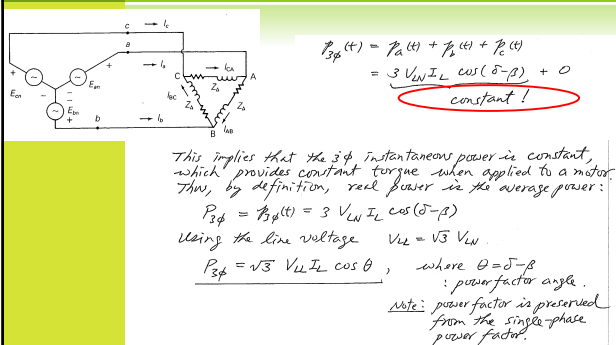 c → I_c
a
→ I_a
+ + C → I_CA A
E_cn E_an Z_Δ
I_BC Z_Δ Z_Δ I_AB
E_bn
+ b → I_b B
p_3φ(t) = p_a(t) + p_b(t) + p_c(t)
= 3 V_LN I_L cos(δ-β) + 0
constant!
This implies that the 3φ instantaneous power is constant,
which provides constant torque when applied to a motor.
Thus, by definition, real power is the average power:
P_3φ = p_3φ(t) = 3 V_LN I_L cos(δ-β)
Using the line voltage V_LL = √3 V_LN
P_3φ = √3 V_LL I_L cos θ , where θ = δ-β
: power factor angle.
Note: power factor is preserved
from the single-phase
power factor.